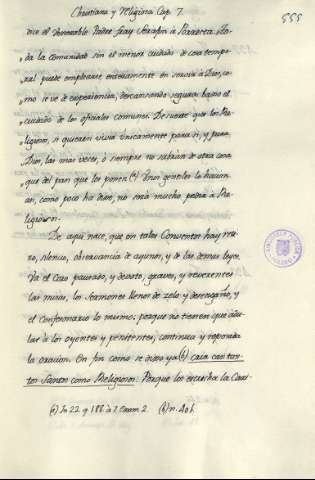 Christiana y Religiosa Cap. 7.
555
vio el Venerable Padre fray Serafin a Parrecta. To-
da la Comunidad sin el menor cuidado de cosa tempo-
ral puede emplearse enteramente en servir a Dios, co-
mo se ve de experiencia, descansando segura bajo el
cuidado de los oficiales comunes. De suerte que los Re-
ligiosos, si quieren vivir unicamente para si, y para
Dios, las mas veces, o siempre no sabrán de otra cosa
que del pan que les ponen (a) Unos gentiles lo hacian
asi, como poco ha dixe, no sera mucho pedir a Re-
ligiosos.
De aqui nace, que en tales Conventos hay reti-
ro, silencio, observancia de ayunos, y de las demas leyes.
Va el Coro pausado, y devoto, graves, y reverentes
las misas, los sermones llenos de zelo y desengaño, y
el Confesonario lo mismo; porque no tienen que adu-
lar a los oyentes y penitentes; continua y reposada
la oracion. En fin como se dixo ya (b) casi son tan-
tos Santos como Religiosos. Porque les enseñ la Cari-
(a) In 22 q 188 à 7. Exam 2. (b) n. 406